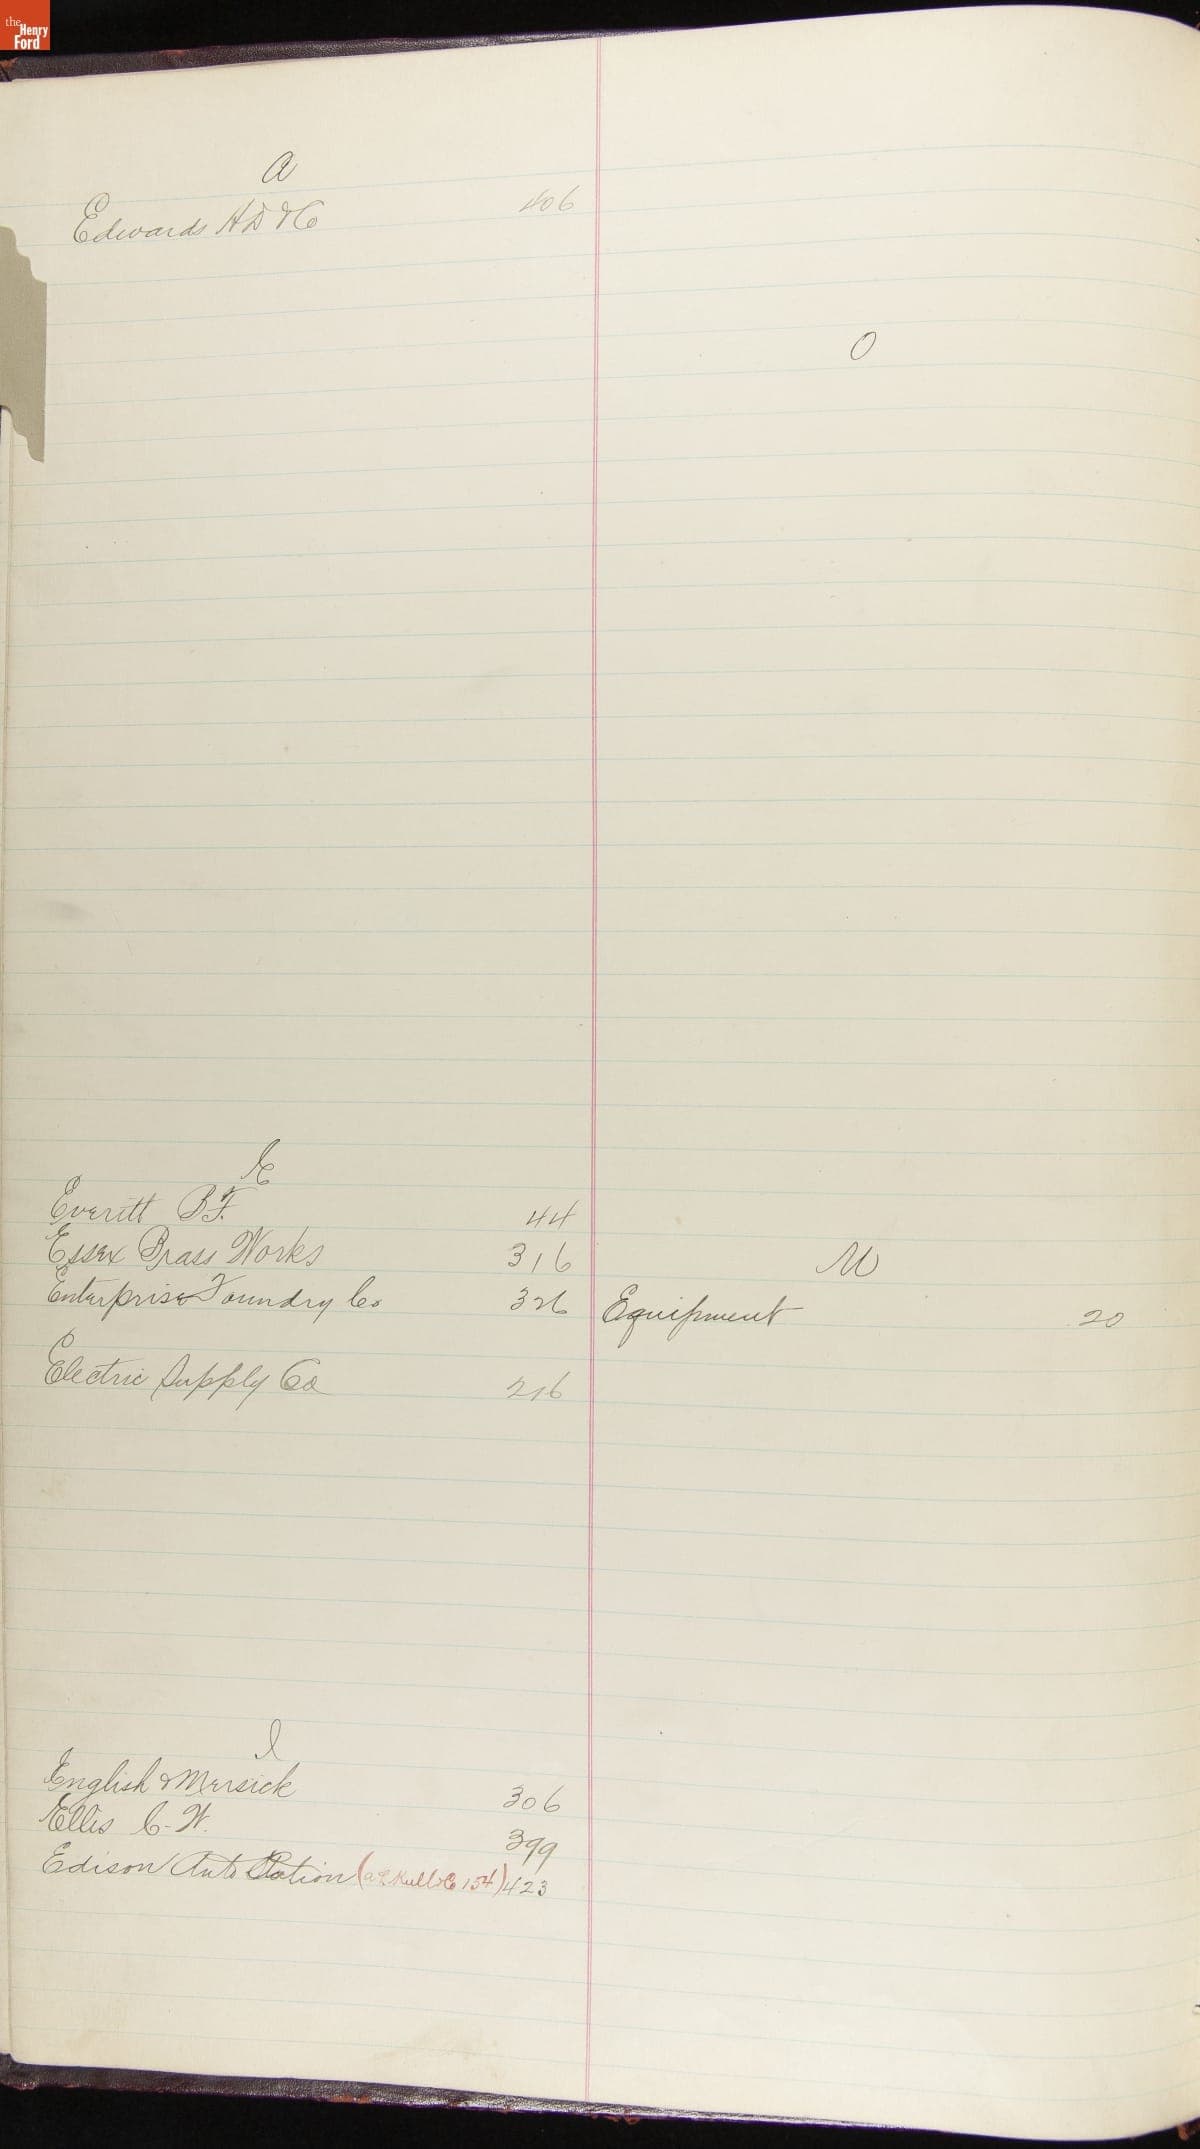 the Henry Ford
a
Edwards H D & Co 406
E
Everitt B F. 44
Essex Brass Works 316
Enterprise Foundry Co 326
Electric Supply Co 216
I
English & Mersick 306
Ellis C. W. 399
Edison Auto Station (A L Kull & Co 154) 423
O
U
Equipment 20